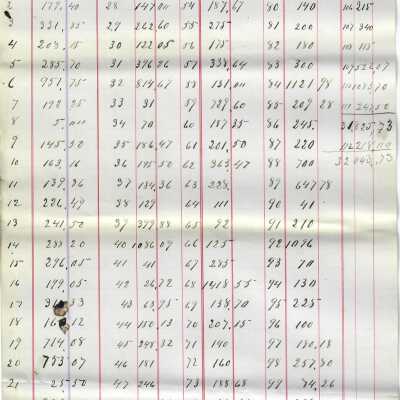 2 177.40 28 147.01 54 187.67 80 140 106 215
3 331.35 29 262.60 55 275 81 200 107 340
4 203.15 30 122.05 56 175 82 180 108 115
5 285.70 31 396.26 57 338.64 83 300
6 957.75 32 814.67 58 131.01 84 1121.98
7 192.25 33 31 59 729.60 85 209.28
8 34 70 60 187.35 86 245. 31,825.73
9 145.30 35 186.47 61 201.50 87 220
10 163.16 36 195.50 62 363.47 88 700 32,043.73
11 139.36 37 134.36 63 228. 89 647.78
12 226.49 38 129 64 111 90 40
13 241.50 39 379.88 65 92 91 210
14 288.20 40 1086.09 66 125 92 1096
15 296.05 41 41 67 285 93 70
16 199.05 42 26.72 68 1418.55 94 130
17 43 63.75 69 138.70 95 225
18 44 150.13 70 207.15 96 100
19 714.08 45 248.32 71 140 97 180.18
20 733.07 46 181 72 160 98 257.30
21 25.50 47 246 73 188.68 99 74.26